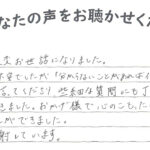 なたの声をお聴かせくだ
お世話になりました。
でしたが「分からないことがあれば
る。てくださり、些細な質問にも丁
きました。おかげ様で心のこもった
ができました。
謝しています。